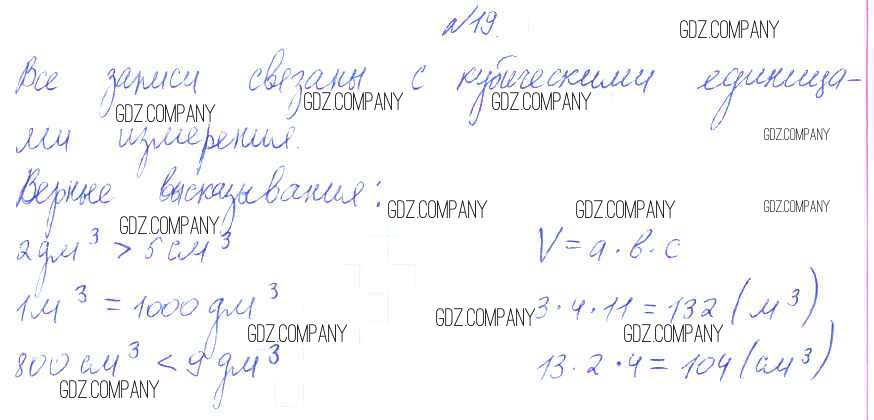 №19.
GDZ.COMPANY
Все записи связаны с кубическими единица-
GDZ.COMPANY GDZ.COMPANY GDZ.COMPANY
ми измерения.
GDZ.COMPANY
Верные высказывания:
GDZ.COMPANY GDZ.COMPANY GDZ.COMPANY
GDZ.COMPANY
2дм³ > 5см³ V = а · в · с
1м³ = 1000дм³ 3 · 4 · 11 = 132 (м³)
GDZ.COMPANY GDZ.COMPANY GDZ.COMPANY
800см³ < 9дм³ 13 · 2 · 4 = 104 (см³)
GDZ.COMPANY